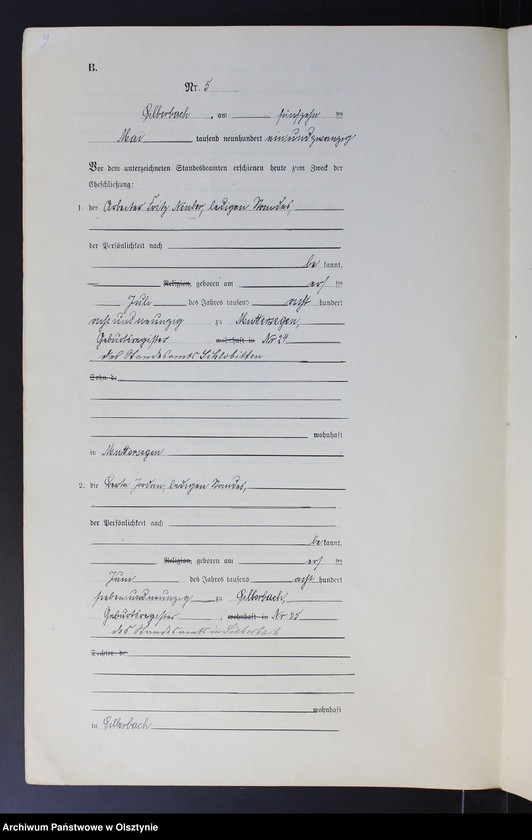 9
B.
Nr. 5
Silberbach, am fünfzehn ten
Mai tausend neunhundert einundzwanzig
Vor dem unterzeichneten Standesbeamten erschienen heute zum Zweck der
Eheschließung:
1. der Arbeiter Fritz ledigen Standes,
der Persönlichkeit nach
be kannt,
Religion, geboren am ers ten
Juli des Jahres tausend acht hundert
acht und neunzig zu Muttersegen,
Geburtsregister wohnhaft in Nr 24
des Standesamts Schlobitten
Sohn de
wohnhaft
in Muttersegen
2. die Berta Jordan, ledigen Standes,
der Persönlichkeit nach
be kannt,
Religion, geboren am ers ten
Juni des Jahres tausend acht hundert
sieben und neunzig zu Silberbach,
Geburtsregister, wohnhaft in Nr 35
des Standesamts in Silberbach
Tochter de
wohnhaft
in Silberbach
Archiwum Państwowe w Olsztynie